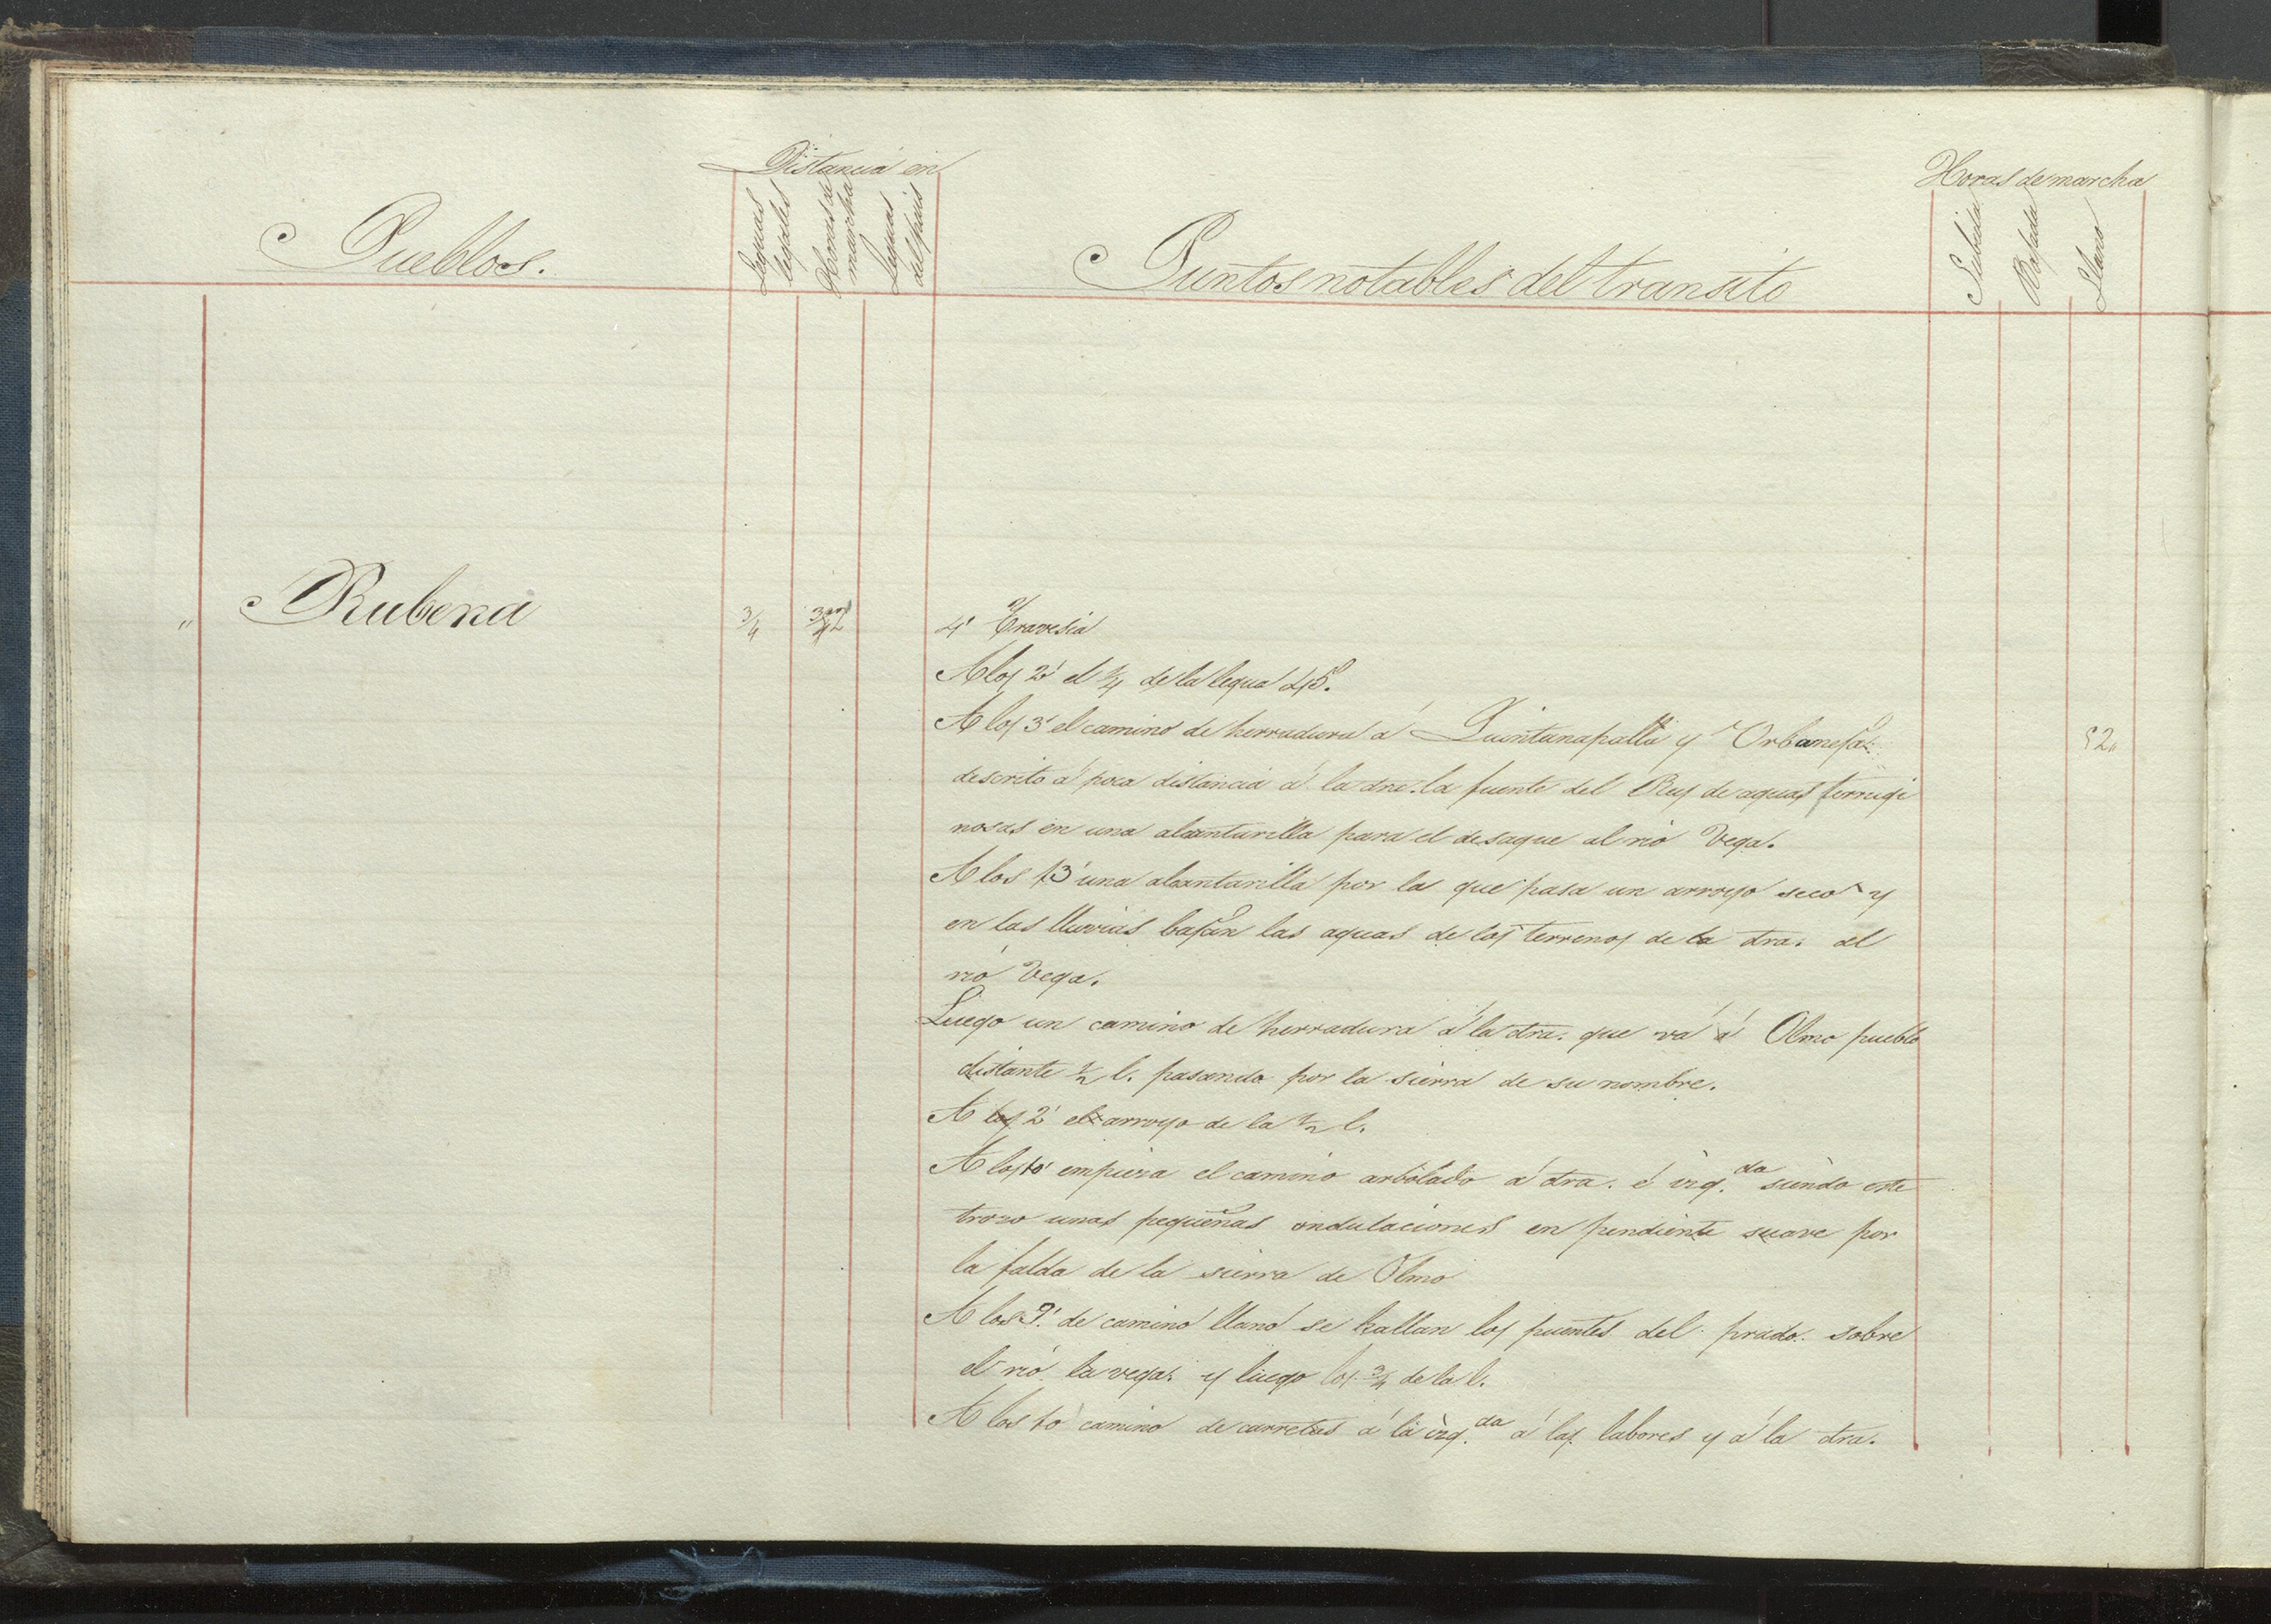 Distancia en
Horas de marcha
Pueblos.
Leguas legales
Horas de marcha
Leguas del pais
Puntos notables del transito
Subida
Bajada
Llano
" Rubena
3/4
4' Travesia
A los 2' el 1/4 de la legua 45.
A los 3' el camino de herradura á Quintanapalla y Urbaneja
52
descrito á poca distancia á la dra. la fuente del Rey de aguas ferrugi
nosas en una alcantarilla para el desague al rio Vega.
A los 13' una alcantarilla por la que pasa un arroyo seco y
en las lluvias bajan las aguas de los terrenos de la dra. al
rio Vega.
Luego un camino de herradura á la dra. que vá á Olmo pueblo
distante 1/2 l. pasando por la sierra de su nombre.
A los 2' el arroyo de la 1/2 l.
A los 10' empieza el camino arbolado á dra. é izq.da siendo este
trozo unas pequeñas ondulaciones en pendiente suave por
la falda de la sierra de Olmo
A los 9' de camino llano se hallan los puentes del prado sobre
el rio la vega. y luego los 3/4 de la l.
A los 10' camino de carretas á la izq.da á las labores y á la dra.